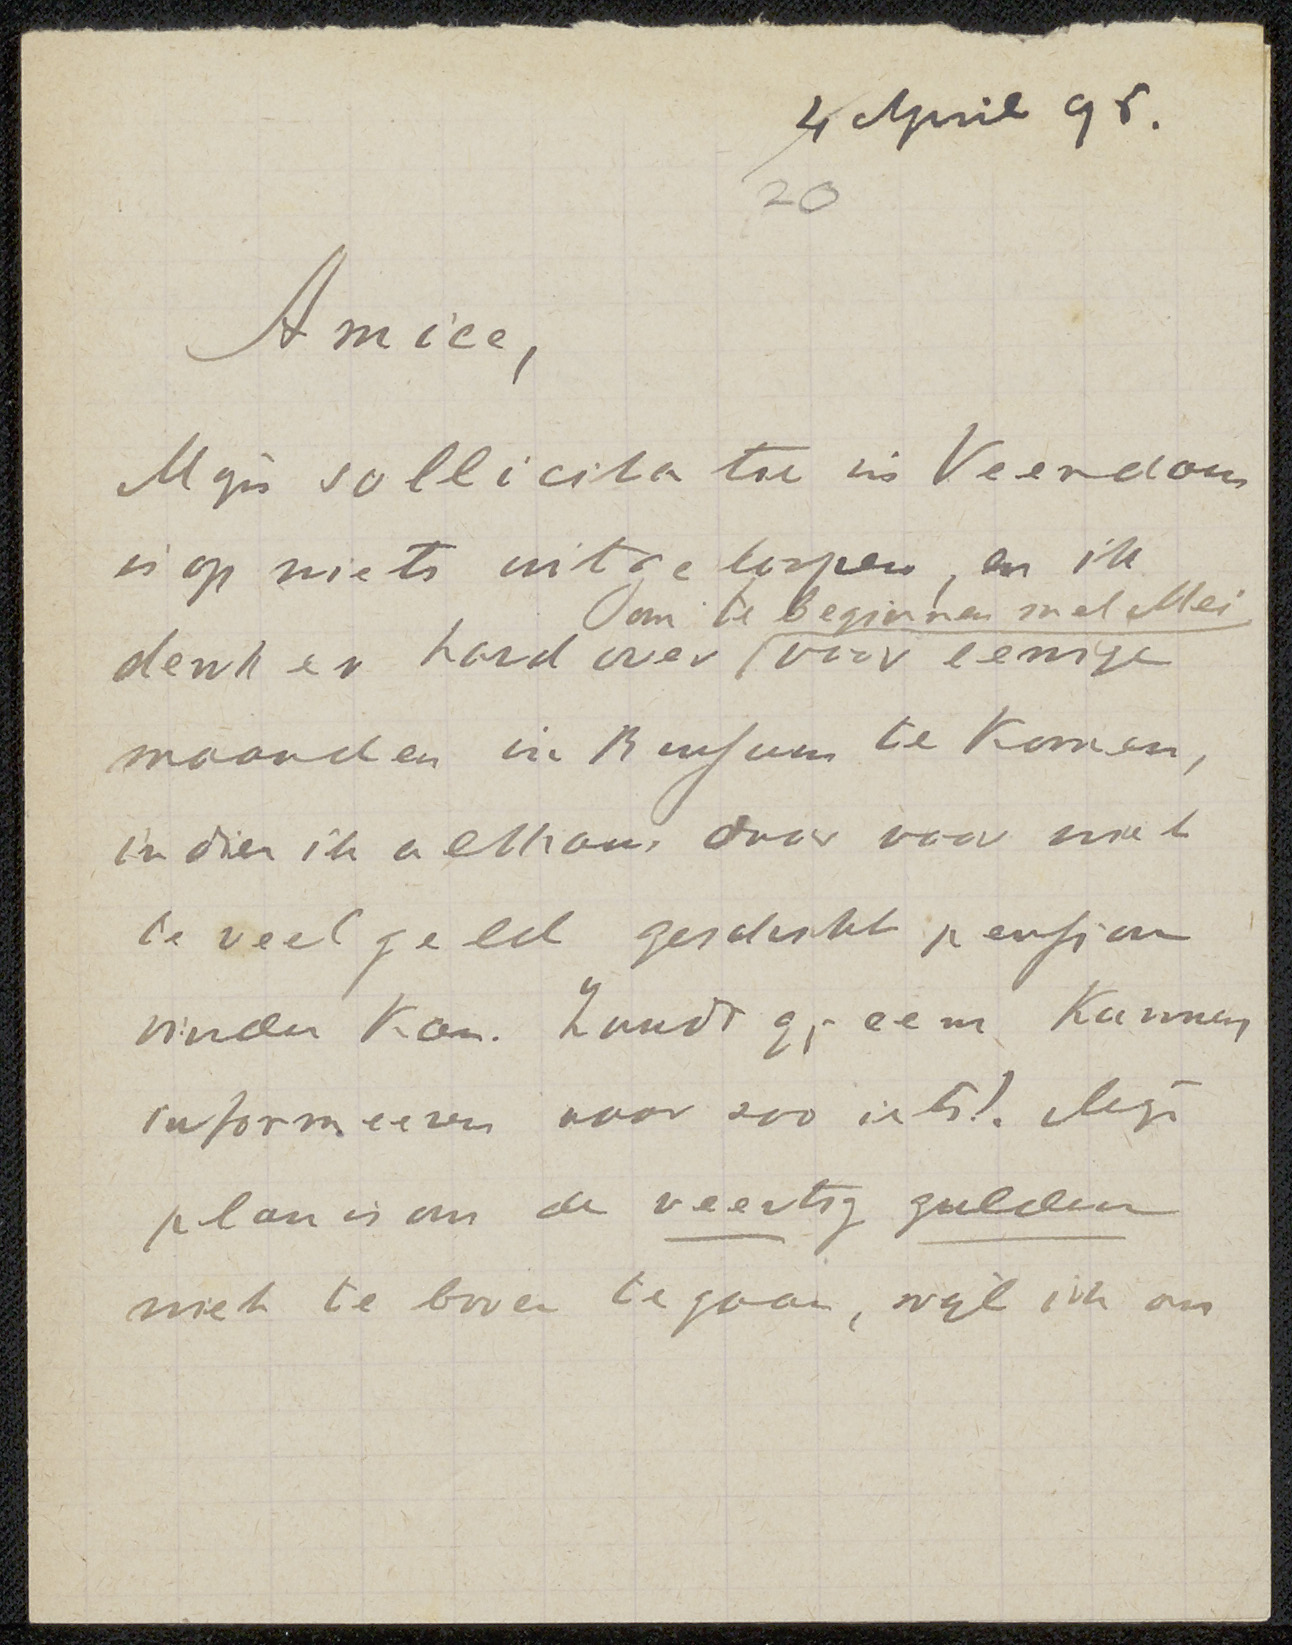 4 April 95.
20
Amice,
Mijn sollicitatie in Veendam
is op niets uitgeloopen, en ik
om te beginnen met Mei
denk er hard over voor eenige
maanden in Bussum te komen,
indien ik althans daar voor niet
te veel geld geschikt pension
vinden kan. Zoudt gij eens kunnen
informeeren naar zoo iets?. Mijn
plan is om de veertig gulden
niet te boven te gaan, wijl ik om